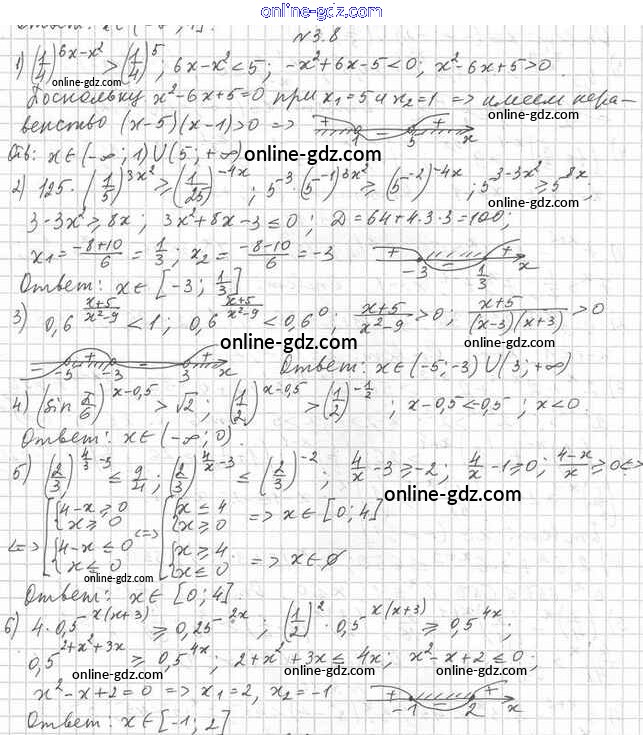 online-gdz.com
N 3.8
1) (1/4)^(6x-x²) > (1/4)^5 ; 6x-x²<5; -x²+6x-5<0; x²-6x+5>0
Поскольку x²-6x+5=0 при x₁=5 и x₂=1 => имеем нера-
венство (x-5)(x-1)>0 => + 1 - 5 + x
Отв: x∈(-∞; 1)∪(5; +∞) online-gdz.com
2) 125·(1/5)^(3x²) ≥ (1/25)^(-4x) ; 5³·(5^(-1))^(3x²) ≥ (5^(-2))^(-4x) ; 5^(3-3x²) ≥ 5^(8x) ;
3-3x² ≥ 8x ; 3x²+8x-3 ≤ 0 ; D = 64+4·3·3 = 100;
x₁ = (-8+10)/6 = 1/3 ; x₂ = (-8-10)/6 = -3 + -3 - 1/3 x
Ответ: x∈[-3; 1/3]
3) 0,6^((x+5)/(x²-9)) < 1 ; 0,6^((x+5)/(x²-9)) < 0,6⁰ ; (x+5)/(x²-9) > 0 ; (x+5)/((x-3)(x+3)) > 0
online-gdz.com
- -5 + -3 - 3 + x Ответ: x∈(-5;-3)∪(3;+∞)
4) (sin π/6)^(x-0,5) > √2 ; (1/2)^(x-0,5) > (1/2)^(-1/2) ; x-0,5<-0,5 ; x<0.
Ответ: x∈(-∞; 0).
5) (2/3)^(4/x-3) ≤ 9/4 ; (2/3)^(4/x-3) ≤ (2/3)^(-2) ; 4/x-3 ≥ -2 ; 4/x-1 ≥ 0 ; (4-x)/x ≥ 0 <=>
online-gdz.com
<=> [ { 4-x ≥ 0 x ≥ 0 <=> [ { x ≤ 4 x ≥ 0 => x∈[0; 4]
{ 4-x ≤ 0 x ≤ 0 { x ≥ 4 x ≤ 0 => x∈∅
online-gdz.com
Ответ: x∈[0; 4].
6) 4·0,5^(x(x+3)) ≥ 0,25^(2x) ; (1/2)^(-2)·0,5^(x(x+3)) ≥ 0,5^(4x) ;
0,5^(2+x²+3x) ≥ 0,5^(4x) ; 2+x²+3x ≤ 4x ; x²-x+2 ≤ 0 ;
online-gdz.com online-gdz.com
x²-x+2=0 => x₁=2, x₂=-1 + -1 - 2 + x
Ответ: x∈[-1; 2]